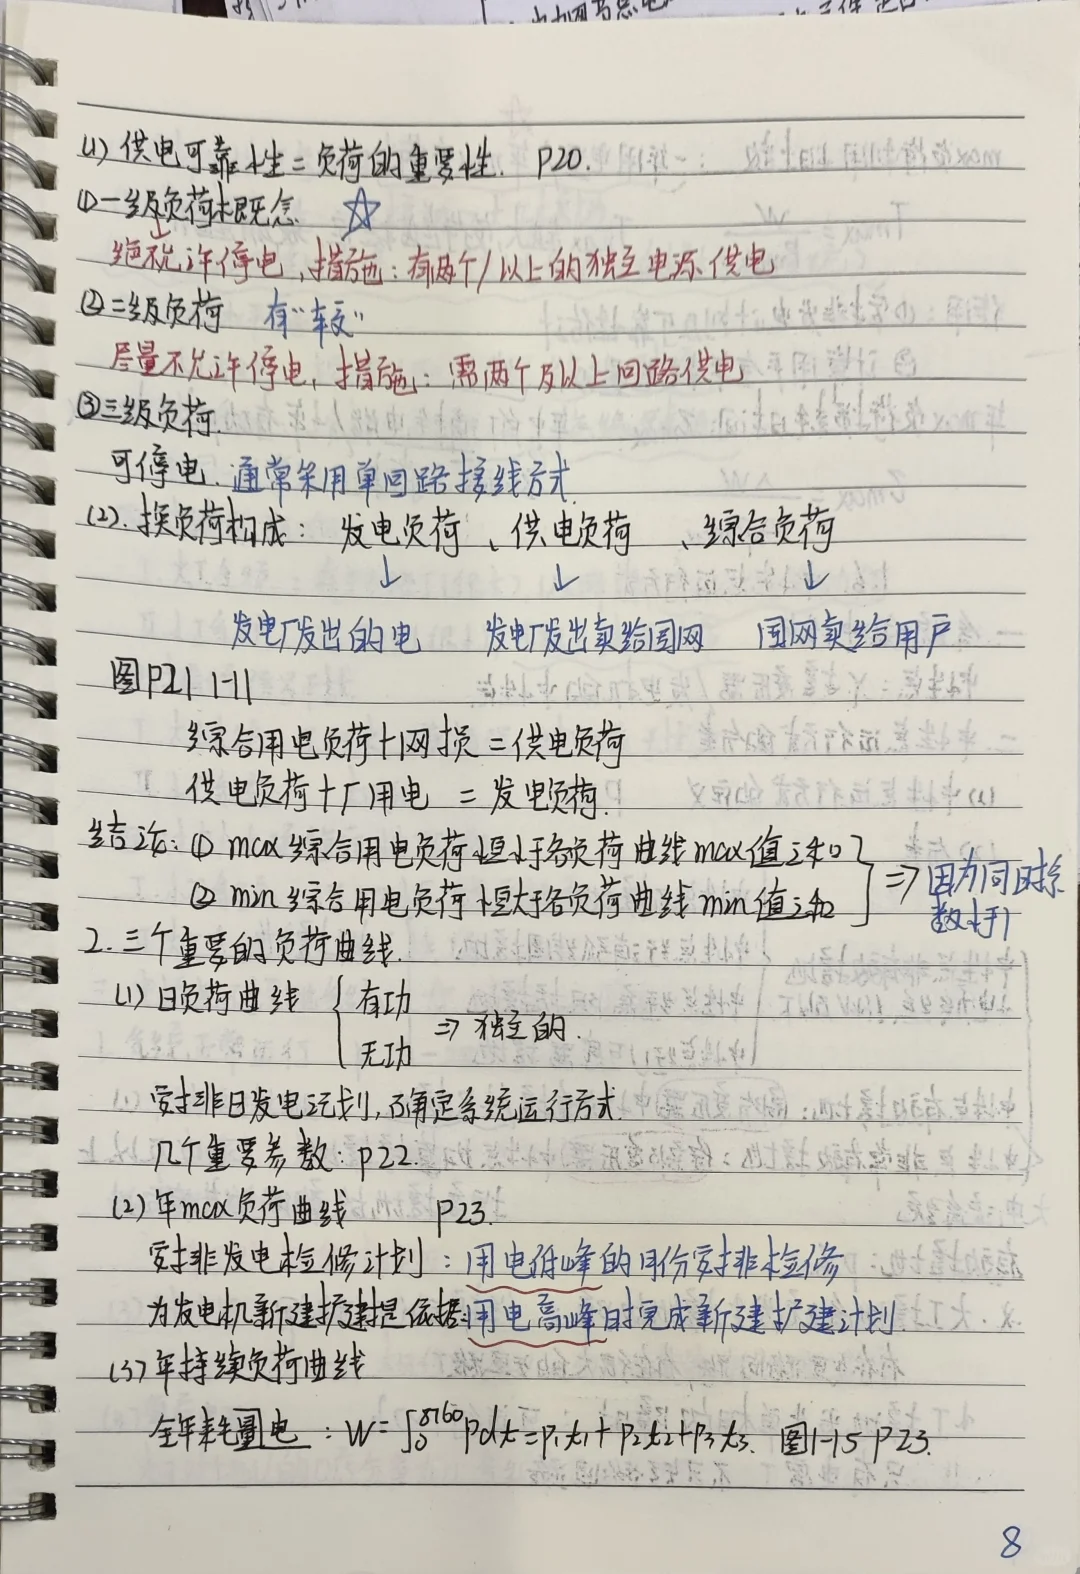 (1) 供电可靠性=负荷的重要性. P20.
①一级负荷概念 ☆
绝不允许停电,措施:有两个/以上的独立电源供电
②二级负荷 有“较”
尽量不允许停电,措施:需两个及以上回路供电
③三级负荷.
可停电.通常采用单回路接线方式.
(2).按负荷构成:发电负荷、供电负荷、综合负荷
↓ ↓ ↓
发电厂发出的电 发电厂发出卖给国网 国网卖给用户
图P21 1-11
综合用电负荷+网损=供电负荷
供电负荷+厂用电=发电负荷.
结论:① max综合用电负荷恒小于各负荷曲线max值之和
② min综合用电负荷恒大于各负荷曲线min值之和
⇒因为同时系数小于1
2.三个重要的负荷曲线.
(1)日负荷曲线 { 有功 无功 ⇒独立的.
安排日发电计划,确定系统运行方式.
几个重要参数:P22.
(2)年max负荷曲线 P23.
安排发电检修计划:用电低峰的月份安排检修
为发电机新建扩建提依据:用电高峰时完成新建扩建计划.
(3)年持续负荷曲线
全年耗量电:W=∫₀⁸⁷⁶⁰Pdt=P₁t₁+P₂t₂+P₃t₃. 图1-15 P23.
8